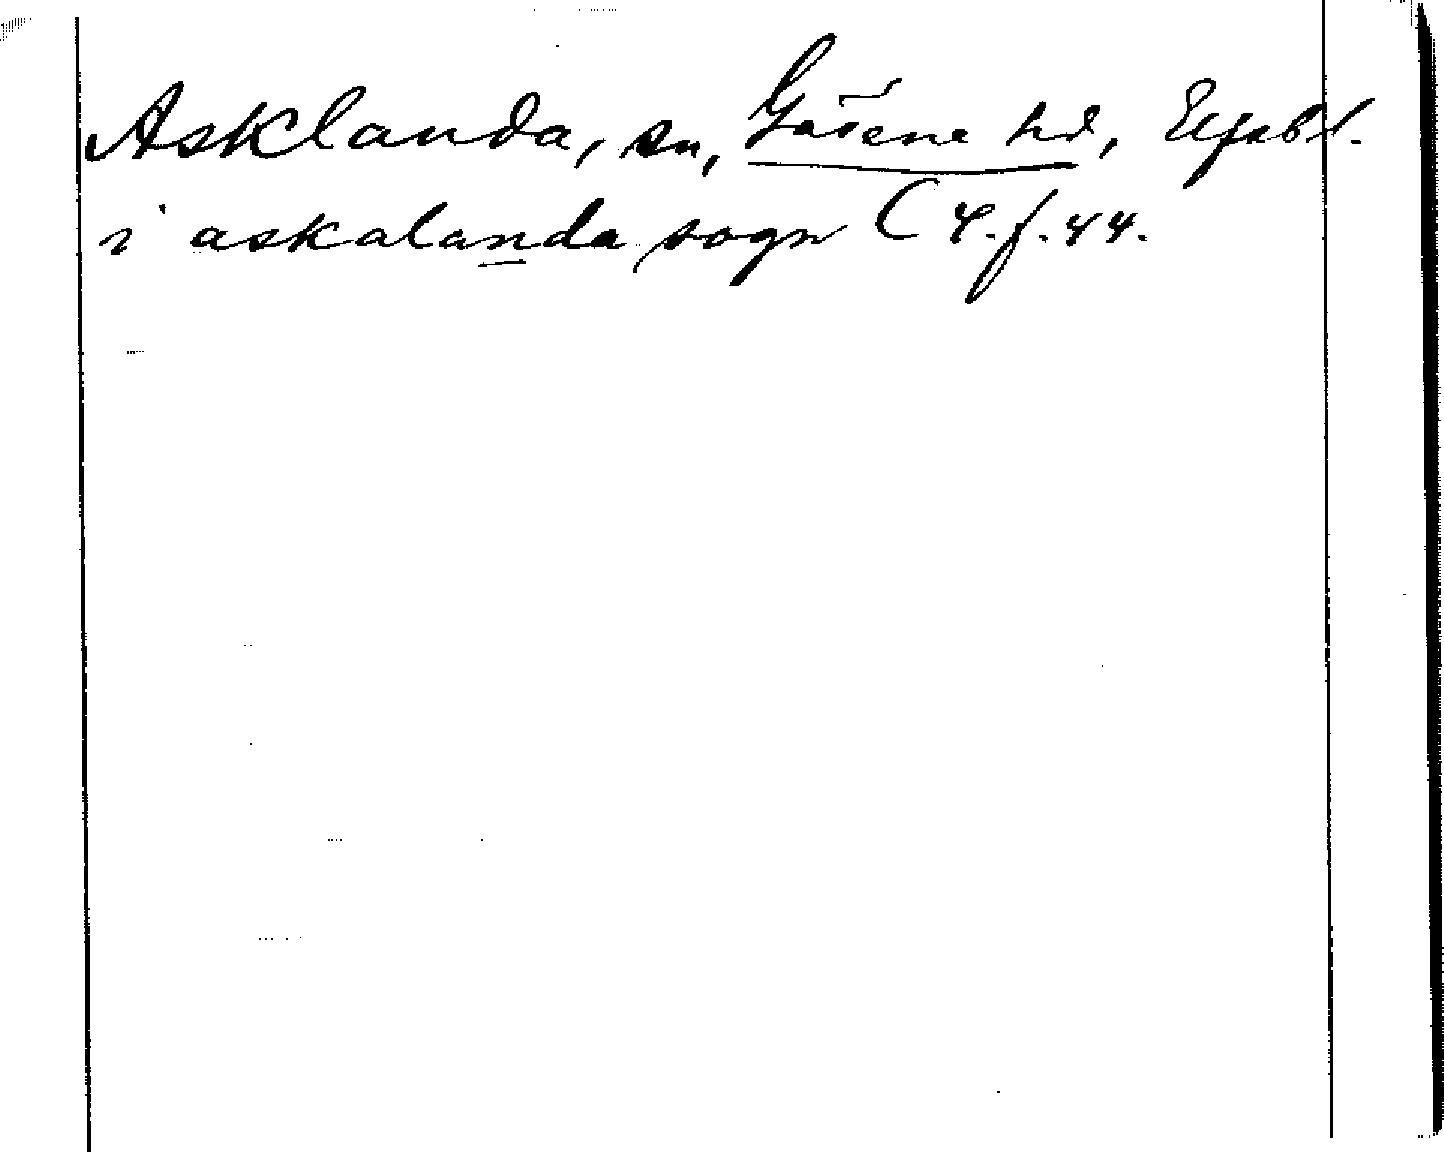 Asklanda, sn, Gäsene hd, Elfsbl.
i askalanda sogn C 4. f. 44.